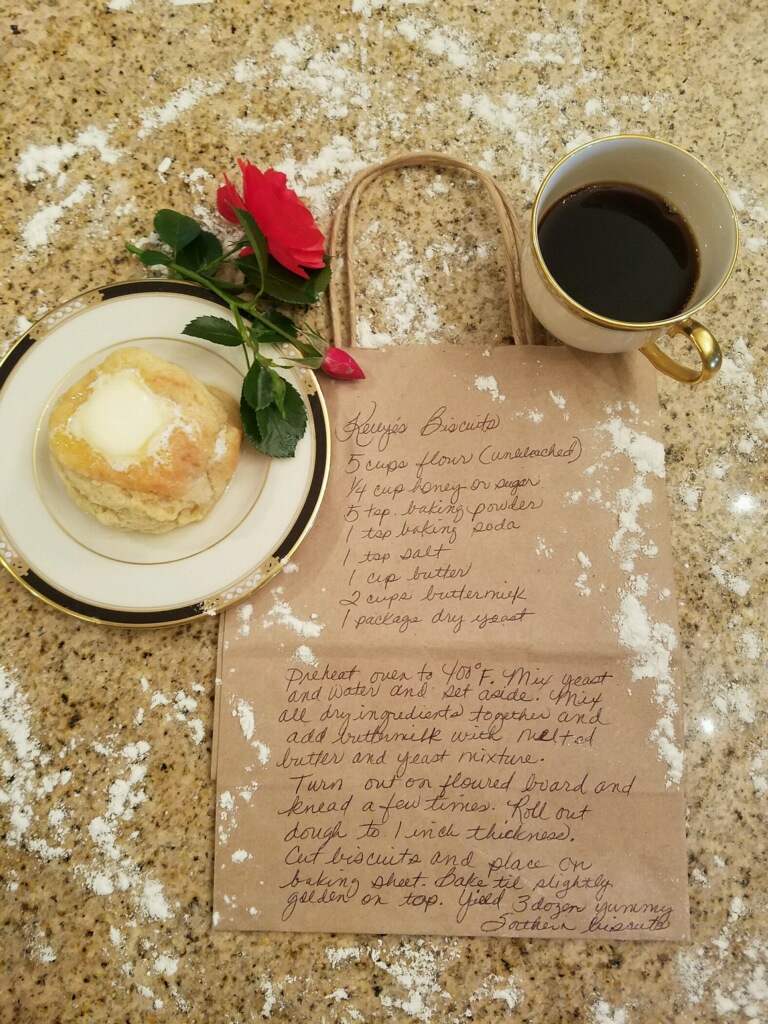 Biscuits
5 cups flour (unbleached)
1/4 cup honey or sugar
5 tsp. baking powder
1 tsp baking soda
1 tsp salt
1 cup butter
2 cups buttermilk
1 package dry yeast
Preheat oven to 400°F. Mix yeast
and water and set aside. Mix
all dry ingredients together and
add buttermilk with melted
butter and yeast mixture.
Turn out on floured board and
knead a few times. Roll out
dough to 1 inch thickness.
Cut biscuits and place on
baking sheet. Bake til slightly
golden on top. Yield 3 dozen yummy
Southern biscuits